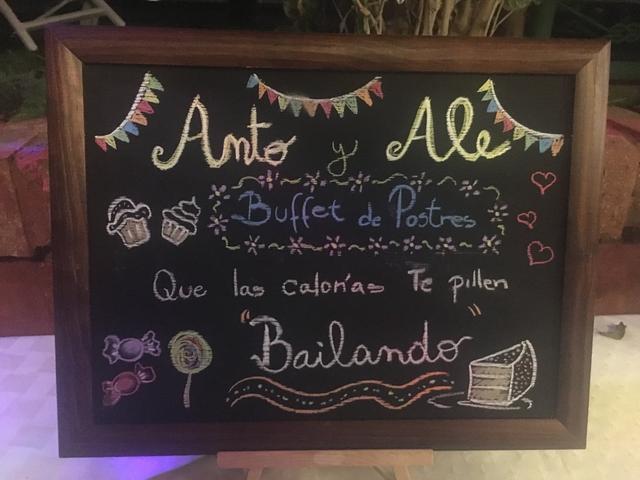 Anto y Ale
Buffet de Postres
Que las calorías Te pillen
"Bailando"